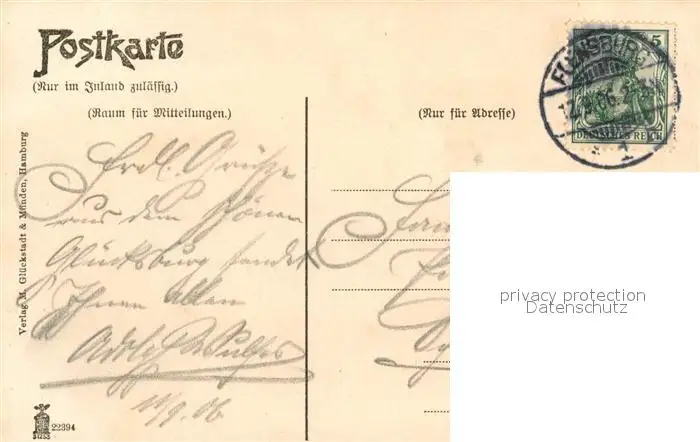 Postkarte
(Nur im Inland zulässig.)
(Raum für Mitteilungen.)
(Nur für Adresse)
5
FLENSBURG
1
DEUTSCHES REICH
Verlag M. Glückstadt & Münden, Hamburg
Frdl. Grüße
aus dem schönen
Glücksburg sendet
Ihnen allen
Adolf
11/9. 06
22394
privacy protection
Datenschutz